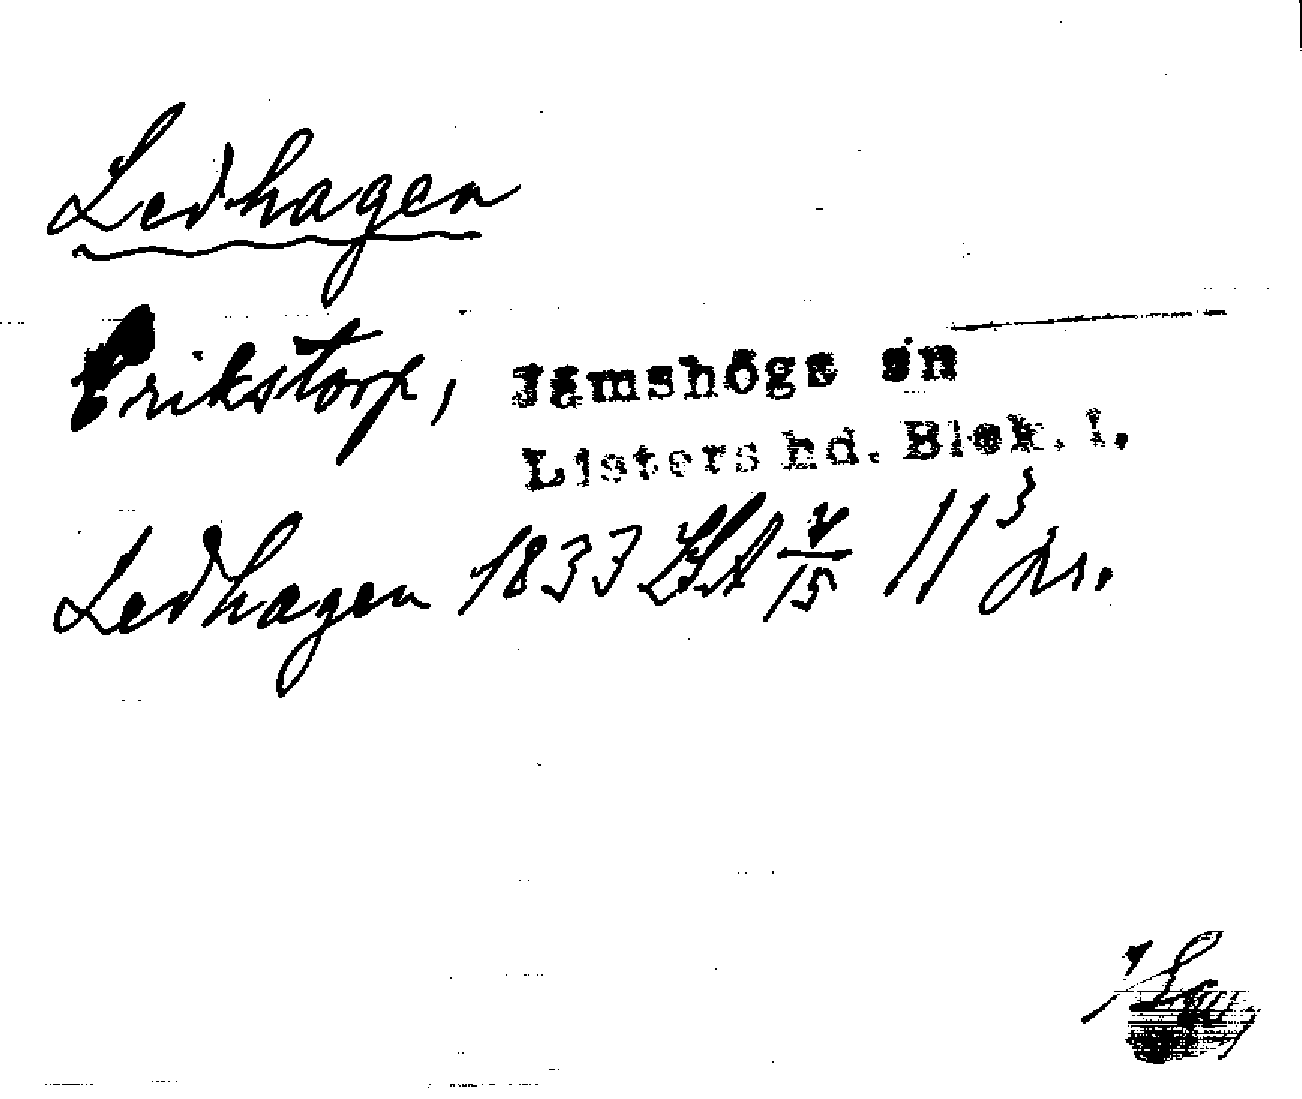 Ledhagen
Erikstorp, Jämshögs sn
Listers hd. Blek. l.
Ledhagen 1833 LSA